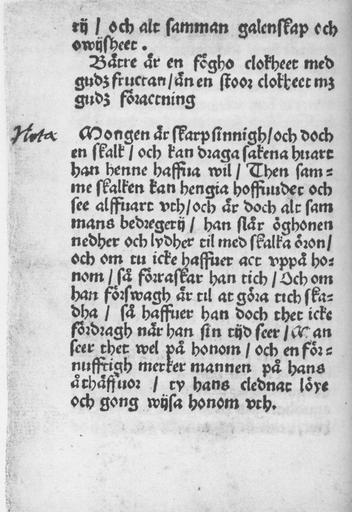 rij / och alt samman galenskap och
owijsheet.
Bätre är en fögho clokheet med
gudz fructan / än en stoor clokheet mz
gudz föractning
Nota
Mongen är skarpsinnigh / och doch
en skalk / och kan draga sakena huart
han henne haffua wil / Then sam=
me skalken kan hengia hoffuudet och
see alffuart vth / och är doch alt sam
mans bedregerij / han slår öghonen
nedher och lydher til med skalka öron /
och om tu icke haffuer act vppå ho=
nom / så förraskar han tich / Och om
han förswagh är til at göra tich ska=
dha / så haffuer han doch thet icke
fördragh när han sin tijd seer / Man
seer thet wel på honom / och en för=
nufftigh merker mannen på hans
åthäffuor / ty hans clednat löye
och gong wijsa honom vth.